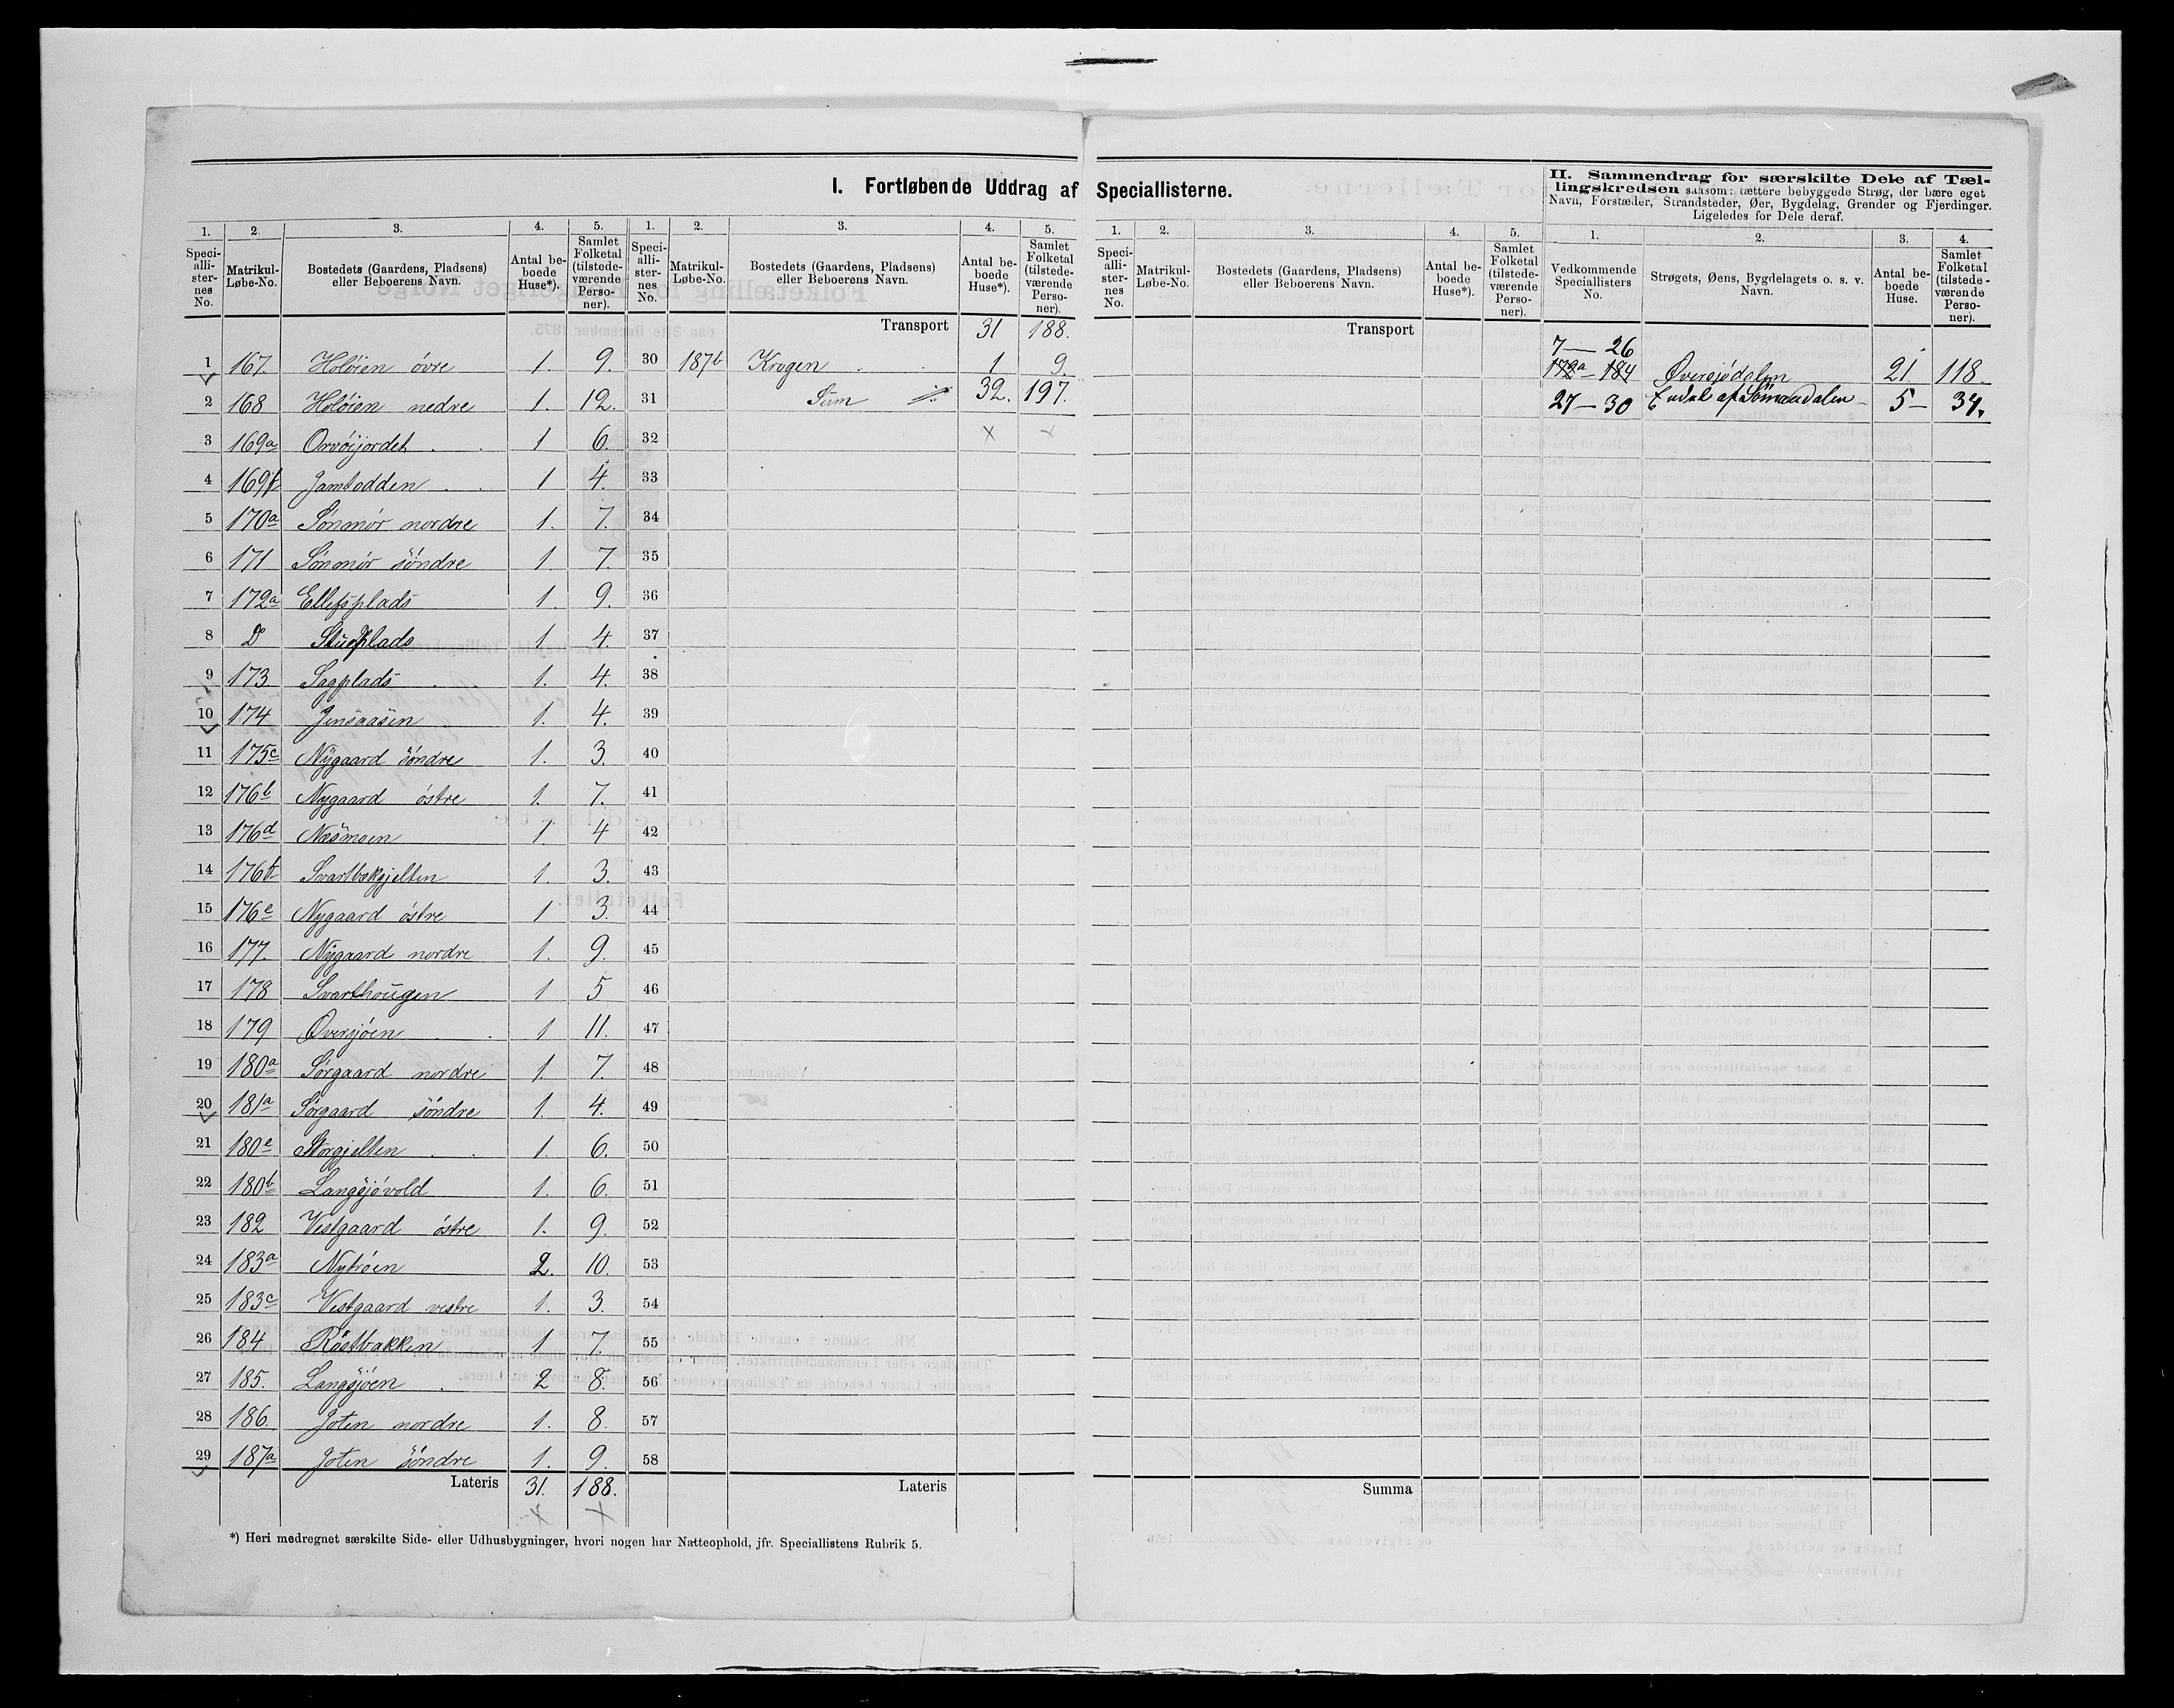 I. Fortløbende Uddrag af Speciallisterne.
II. Sammendrag for særskilte Dele af Tæl-
lingskredsen saasom: tættere bebyggede Strøg, der bære eget
Navn, Forstæder, Strandsteder, Øer, Bygdelag, Grender og Fjerdinger.
Ligeledes for Dele deraf.
1. 2. 3. 4. 5. 1. 2. 3. 4. 5. 1. 2. 3. 4. 5. 1. 2. 3. 4.
Speci-alli-ster-nes No. Matrikul-Løbe-No. Bostedets (Gaardens, Pladsens) eller Beboerens Navn. Antal be-boede Huse*). Samlet Folketal (tilstede-værende Perso-ner).
Speci-alli-ster-nes No. Matrikul-Løbe-No. Bostedets (Gaardens, Pladsens) eller Beboerens Navn. Antal be-boede Huse*). Samlet Folketal (tilstede-værende Perso-ner).
Speci-alli-ster-nes No. Matrikul-Løbe-No. Bostedets (Gaardens, Pladsens) eller Beboerens Navn. Antal be-boede Huse*). Samlet Folketal (tilstede-værende Perso-ner).
Vedkommende Speciallisters No. Strøgets, Øens, Bygdelagets o. s. v. Navn. Antal be-boede Huse. Samlet Folketal (tilstede-værende Perso-ner).
1 167. Holøien övre 1. 9.
2 168 Holøien nedre 1. 12.
3 169a Orvöijordet 1 6.
4 169b Jamtodden 1 4.
5 170a Sönmör nordre 1. 7.
6 171 Sönmör söndre 1. 7.
7 172a Ellefsplads 1. 9.
8 Do Stueplads 1 4.
9 173. Sagplads 1. 4.
10 174 Jensaasen 1. 4.
11 175c Nygaard söndre 1. 3.
12 176b Nygaard östre 1. 7.
13 176d Næsmoen 1 4
14 176f Svartbækgjelten 1. 3.
15 176e Nygaard östre 1 3.
16 177. Nygaard nordre 1. 9.
17 178 Svarthougen 1 5
18 179 Øversjöen 1 11.
19 180a Sörgaard nordre 1. 7.
20 181a Sörgaard söndre 1. 4.
21 180e Storgjelten 1. 6.
22 180b Langsjövold 1. 6.
23 182 Vestgaard östre 1. 9.
24 183a Nytröen 2. 10.
25 183c Vestgaard vestre 1. 3.
26 184 Röstbakken 1 7.
27 185. Langsjöen 2 8.
28 186. Joten nordre 1. 8.
29 187a Joten söndre 1. 9.
Lateris 31. 188.
Transport 31 188.
30 187b Krogen 1 9.
31 Sum 32. 197.
32
33
34
35
36
37
38
39
40
41
42
43
44
45
46
47
48
49
50
51
52
53
54
55
56
57
58
Lateris
Transport
Summa
7 — 26
172a — 184 Øversjödalen 21. 118.
27 — 30 En del af Tönnadalen 5 — 34.
*) Heri medregnet særskilte Side- eller Udhusbygninger, hvori nogen har Natteophold, jfr. Speciallistens Rubrik 5.